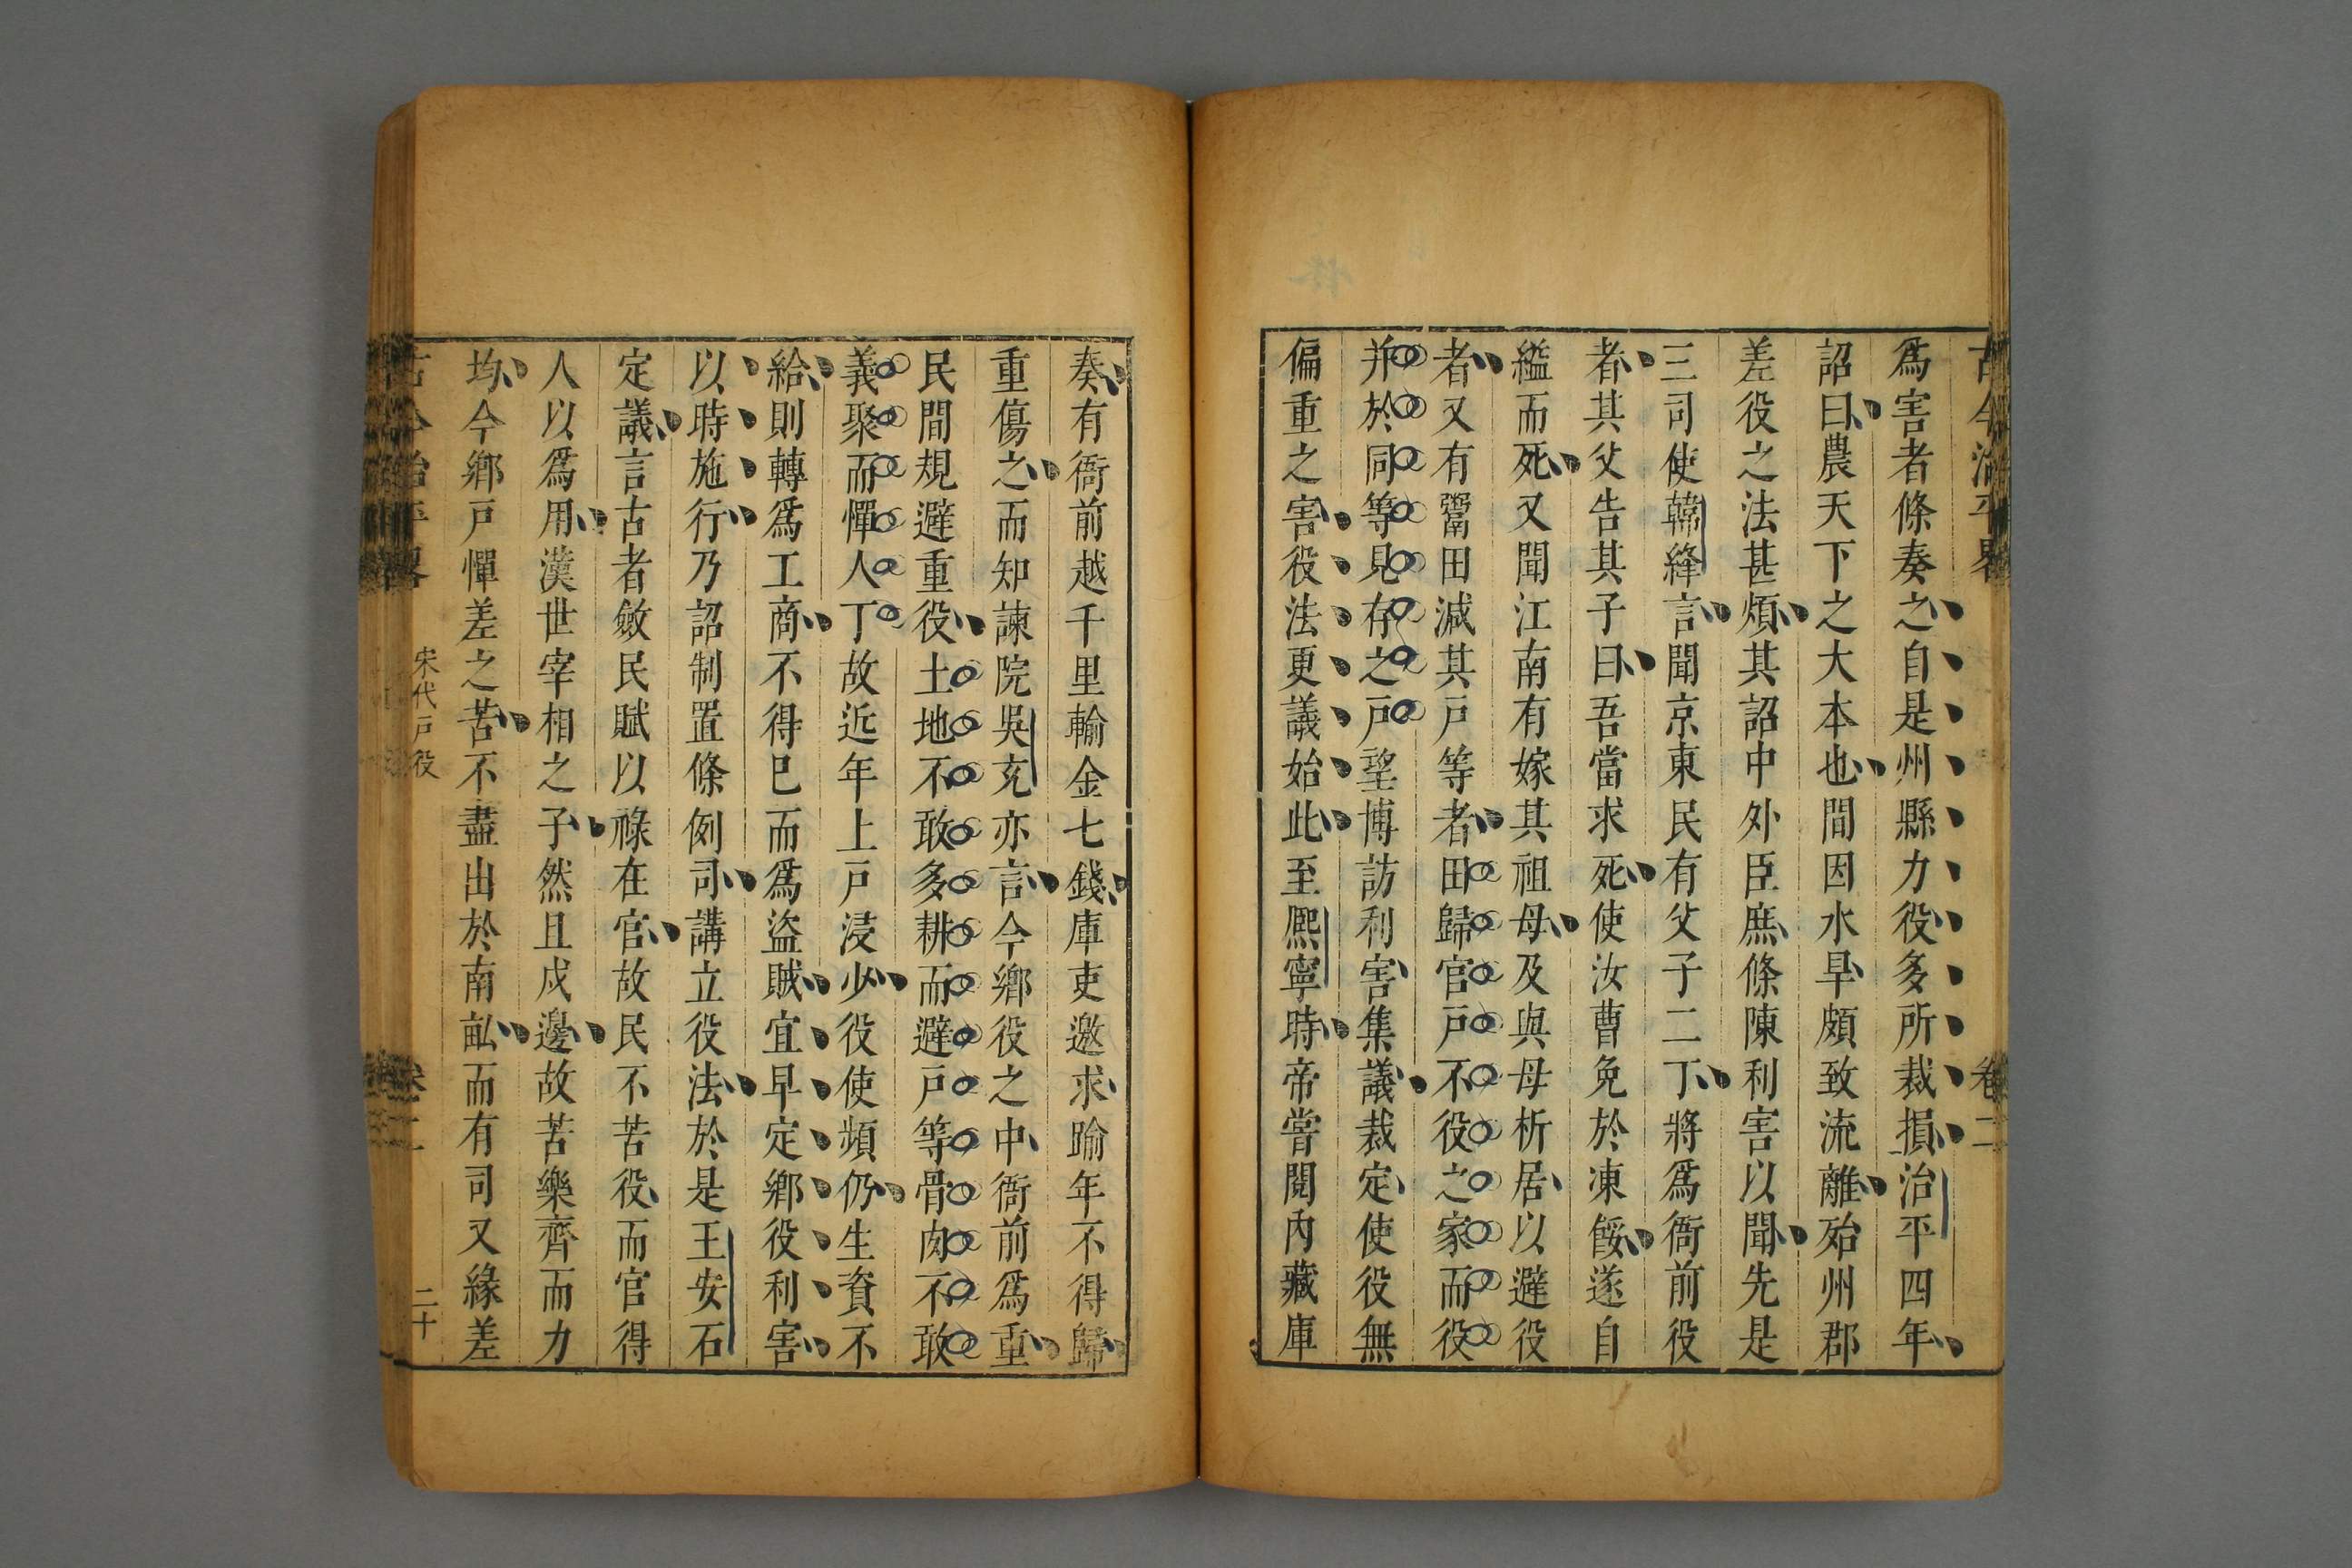 古今治平畧 卷二
爲害者條奏之自是州縣力役多所裁損治平四年
詔曰農天下之大本也間因水旱頗致流離殆州郡
差役之法甚煩其詔中外臣庶條陳利害以聞先是
三司使韓絳言聞京東民有父子二丁將爲衙前役
者其父告其子曰吾當求死使汝曹免於凍餒遂自
縊而死又聞江南有嫁其祖母及與母析居以避役
者又有鬻田減其戸等者田歸官戸不役之家而役
并於同等見存之戸望博訪利害集議裁定使役無
偏重之害役法更議始此至熙寧時帝嘗閲內藏庫
奏有衙前越千里輸金七錢庫吏邀求踰年不得歸
重傷之而知諫院吳充亦言今鄉役之中衙前爲重
民間規避重役土地不敢多耕而避戸等骨肉不敢
義聚而憚人丁故近年上戸浸少役使頻仍生資不
給則轉爲工商不得巳而爲盜賊宜早定鄉役利害
以時施行乃詔制置條例司講立役法於是王安石
定議言古者斂民賦以祿在官故民不苦役而官得
人以爲用漢世宰相之子然且戍邊故苦樂齊而力
均今鄉戸憚差之苦不盡出於南畝而有司又緣差
古今治平畧 宋代戸役 卷二 二十